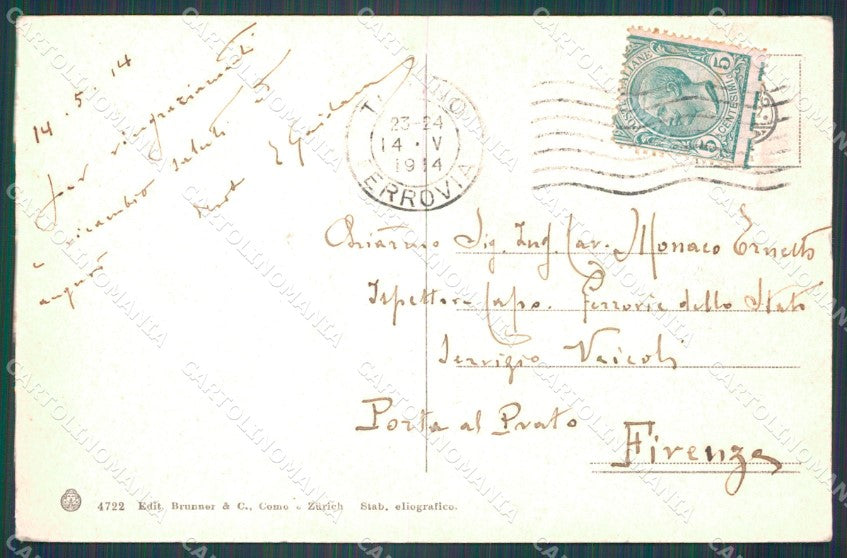 14 . 5 . 14
per ringraziamenti
e ricambio saluti
auguri
23-24
14 · V
1914
FERROVIA
POSTE ITALIANE
CENTESIMI 5
Chiarmo Sig. Ing. Cav. Monaco Ernesto
Ispettore Capo. Ferrovie dello Stato
Servizio Veicoli
Porta al Prato
Firenze
4722 Edit. Brunner & C., Como e Zürich Stab. eliografico.
CARTOLINOMANIA